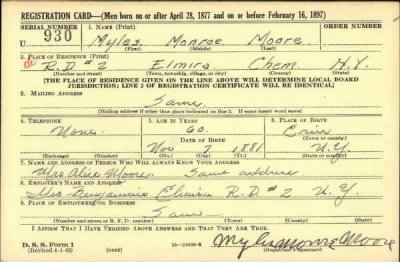 REGISTRATION CARD—(Men born on or after April 28, 1877 and on or before February 16, 1897)
SERIAL NUMBER 1. NAME (Print) ORDER NUMBER
U 930 Myles Monroe Moore
(First) (Middle) (Last)
2. PLACE OF RESIDENCE (Print)
R.D. # 2 Elmira Chem N.Y.
(Number and street) (Town, township, village, or city) (County) (State)
[THE PLACE OF RESIDENCE GIVEN ON THE LINE ABOVE WILL DETERMINE LOCAL BOARD
JURISDICTION; LINE 2 OF REGISTRATION CERTIFICATE WILL BE IDENTICAL]
3. MAILING ADDRESS
Same
[Mailing address if other than place indicated on line 2. If same insert word same]
4. TELEPHONE 5. AGE IN YEARS 6. PLACE OF BIRTH
None 60 Erin
DATE OF BIRTH (Town or county)
Nov 7 1881 N.Y.
(Exchange) (Number) (Mo.) (Day) (Yr.) (State or country)
7. NAME AND ADDRESS OF PERSON WHO WILL ALWAYS KNOW YOUR ADDRESS
Mrs Alice Moore Same address
8. EMPLOYER'S NAME AND ADDRESS
Benjamin Elmira R.D. # 2 N.Y.
9. PLACE OF EMPLOYMENT OR BUSINESS
Same
(Number and street or R. F. D. number) (Town) (County) (State)
I AFFIRM THAT I HAVE VERIFIED ABOVE ANSWERS AND THAT THEY ARE TRUE.
D. S. S. Form 1
(Revised 4-1-42) (over) Myles Monroe Moore
(Registrant's signature)